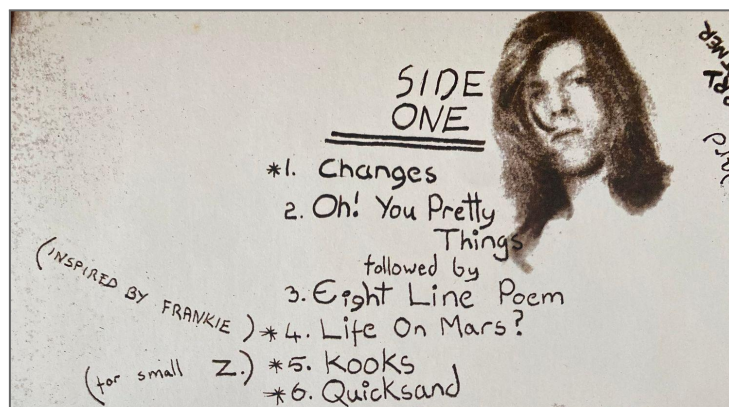 SIDE
ONE
*1. Changes
2. Oh! You Pretty
Things
followed by
3. Eight Line Poem
(INSPIRED BY FRANKIE) *4. Life On Mars?
(for small Z.) *5. Kooks
*6. Quicksand